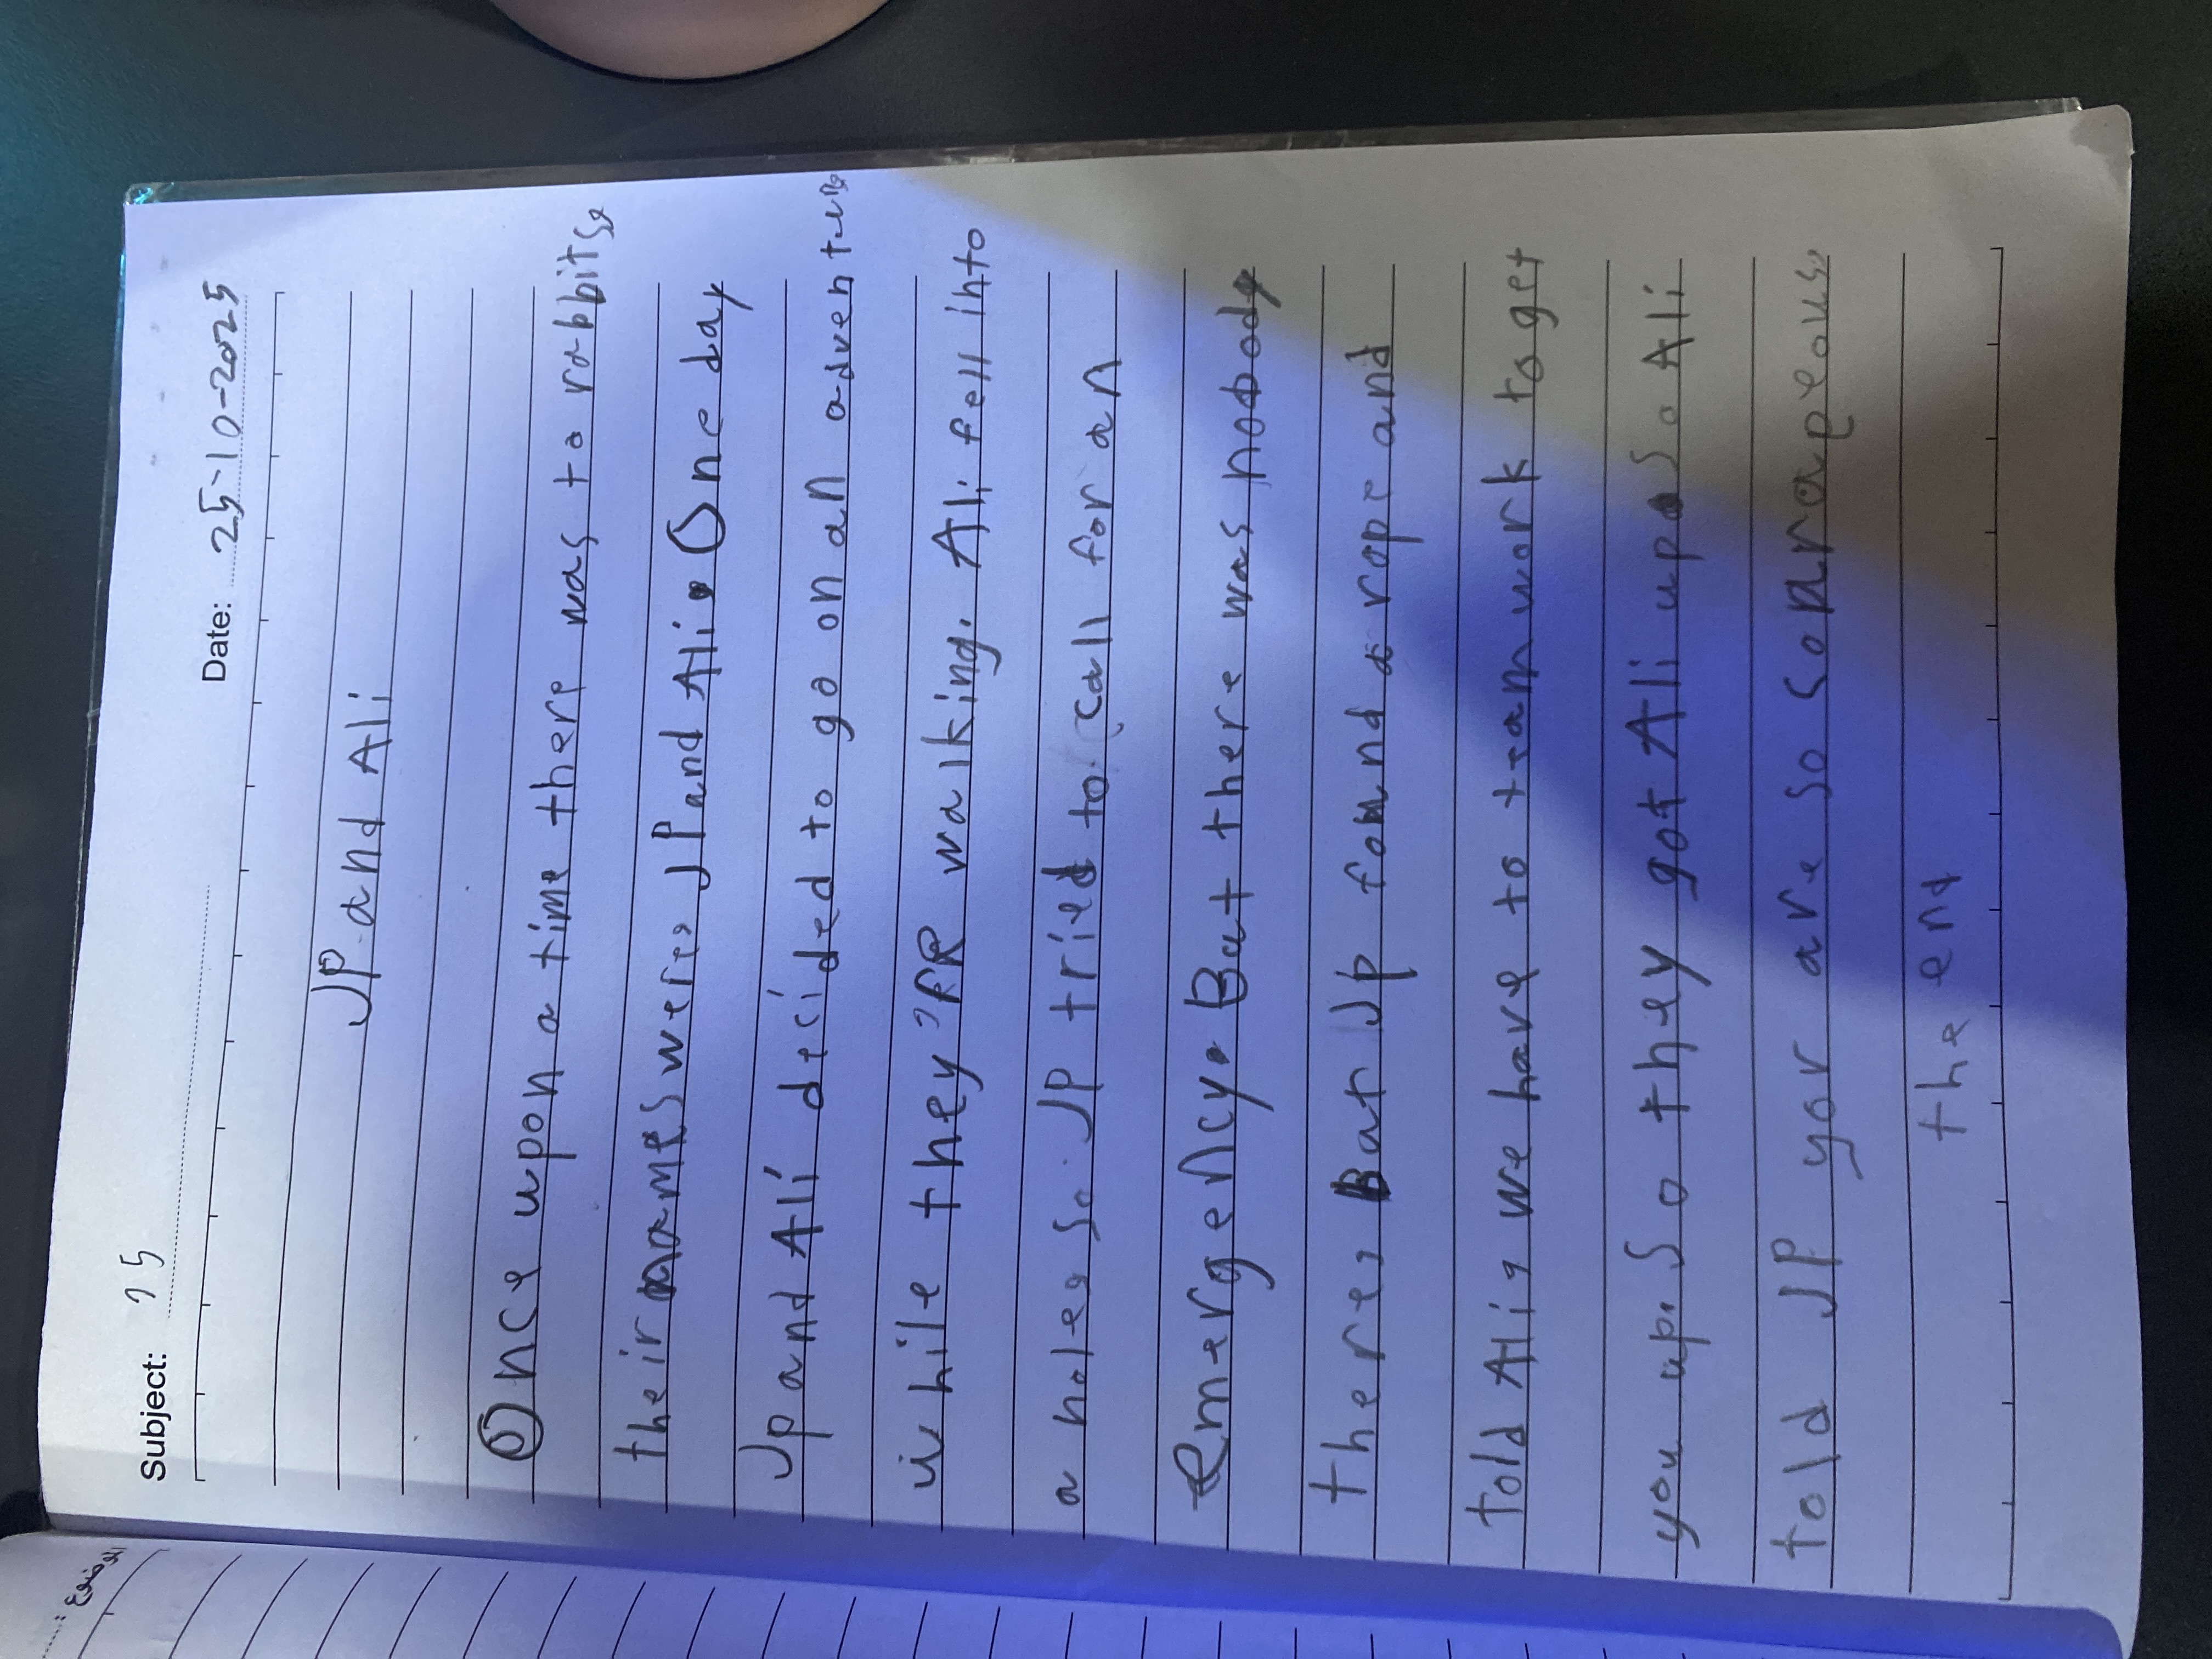 Subject: 25
Date: 25-10-2025
JP and Ali
Once upon a time there was to rabbits
their names were, JP and Ali. One day
Jp and Ali decided to go on an adventure
while they ar walking. Ali fell into
a hole, So. JP tried to call for an
emergency. But there was nobody
there, But Jp found a rope and
told Ali, we have to teamwork to get
you up. So they got Ali up. So Ali
told JP your are so
the end